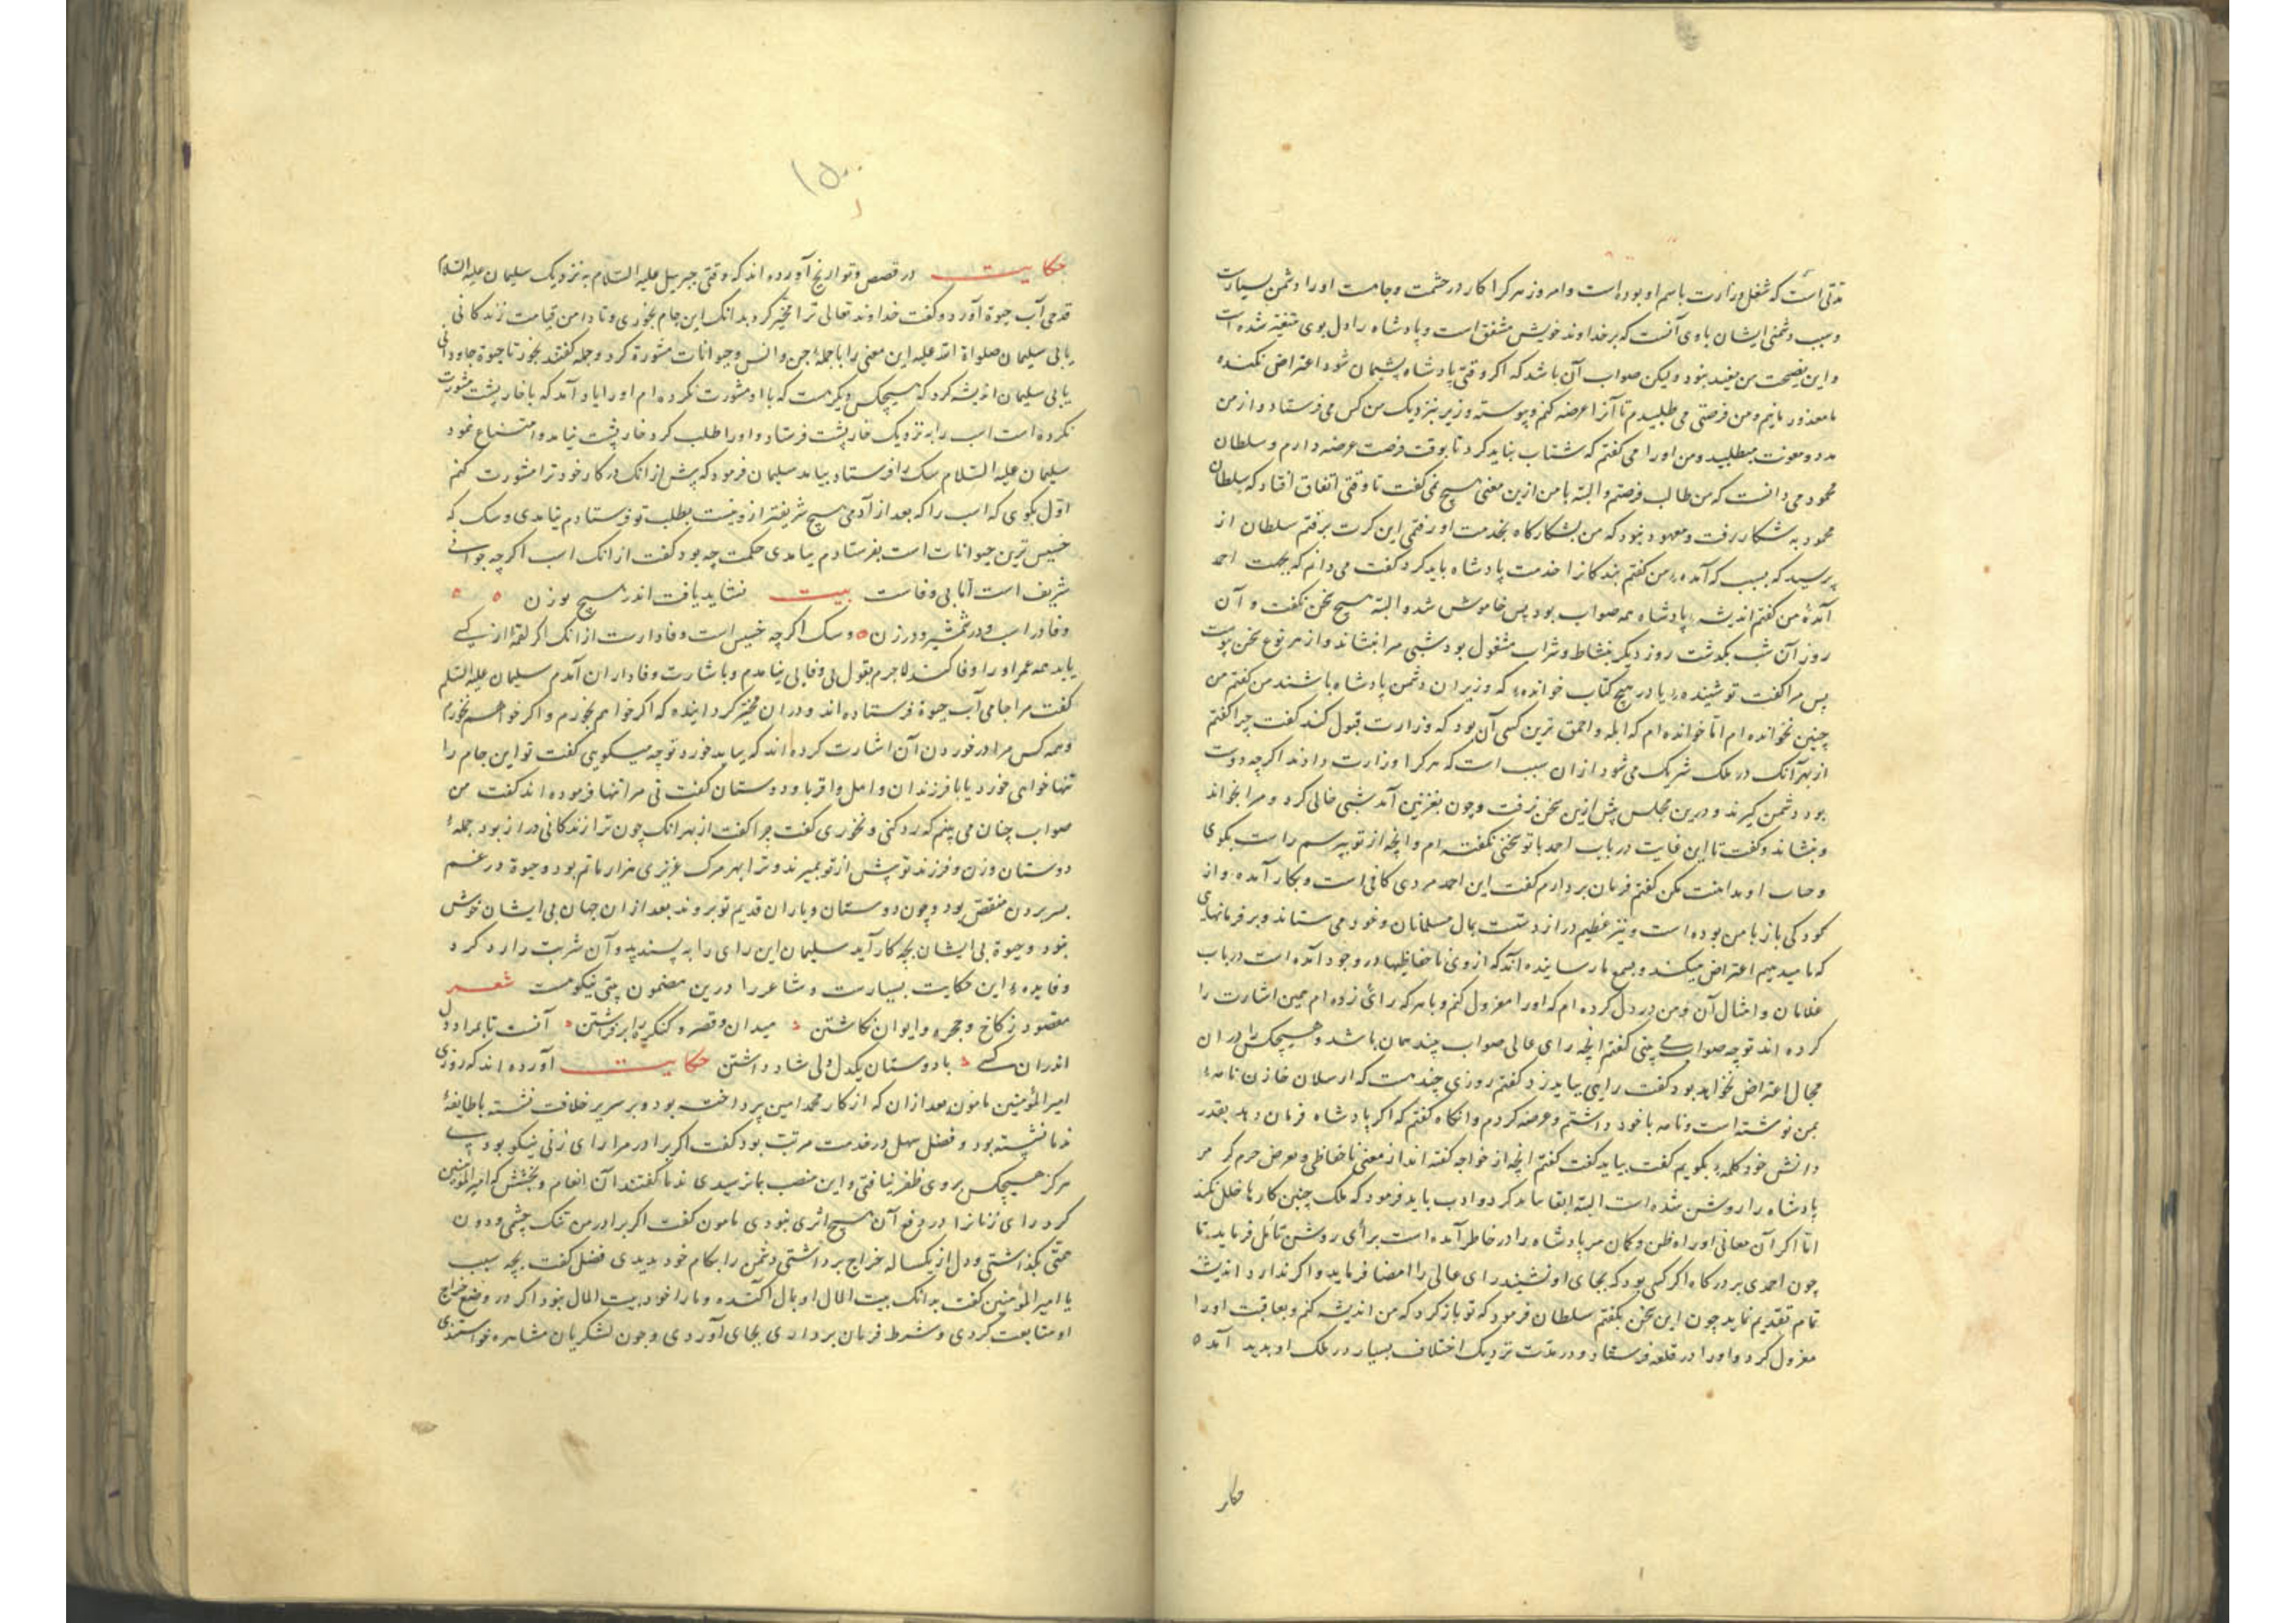 مدتی است که شغل وزارت باسم او بوده است و امروز هر کرا کار در حشمت و جامت او را دشمن بسیارست
و سبب دشمنی ایشان با وی آنست که بر خداوند خویش مشفق است و پادشاه را دل بوی متغیر شده است
و این نصیحت من مفید نبود ولیکن صواب آن باشد که اگر وقتی پادشاه پشیمان شود اعتراض نکند
ما معذور مانیم و من فرصتی می طلبیدم تا آنرا عرضه کنم و پیوسته وزیر بنزدیک من کس می فرستاد و از من
مدد و معونت میطلبید و من او را می گفتم که شتاب نباید کرد تا بوقت فرصت عرضه دارم و سلطان
محمود می دانست که من طالب فرصتم و البته با من ازین معنی هیچ نمی گفت تا وقتی اتفاق افتاد که سلطان
محمود به شکار رفت و معهود نبود که من بشکارگاه بخدمت او رفتمی این کرت برفتم سلطان از
پرسید که بسبب که آمده من گفتم بندکانرا خدمت پادشاه باید کرد گفت می دانم که بجهت احمد
آمدهٔ من گفتم اندیشهٔ پادشاه همه صواب بود پس خاموش شد و البته هیچ سخن نگفت و آن
روز آن شب بگذشت روز دیگر بنشاط و شراب مشغول بود شبی مرا بنشاند و از هر نوع سخن پیوست
پس مرا گفت تو شنیدهٔ یا در هیچ کتاب خواندهٔ که وزیران دشمن پادشاه باشند من گفتم من
چنین نخوانده ام اما خوانده ام که ابله و احمق ترین کسی آن بود که وزارت قبول کند گفت چرا گفتم
از بهر آنک در ملک شریک می شود ازان سبب است که هر کرا وزارت دادند اگر چه دوست
بود دشمن گیرند و درین مجلس پیش ازین سخن نرفت و چون بغزنین آمد شبی خالی کرد و مرا بخواند
و بنشاند و گفت تا این غایت در باب احمد با تو سخنی نگفته ام و آنچه از تو بپرسم راست بگوی
و حساب او مداهنت مکن گفتم فرمان بردارم گفت این احمد مردی کافی است و بکار آمده و از
کودکی باز با من بوده است و نیز عظیم دراز دستست بمال مسلمانان و خود می ستاند و بر فرمانهای
که ما میدهیم اعتراض میکند و بسمع ما رسانیده اند که از وی ناحفاظیها در وجود آمده است در باب
غلامان و امثال آن و من در دل کرده ام که او را معزول کنم و با هر که رای زده ام همین اشارت را
کرده اند تو چه صواب می بینی گفتم آنچه رای عالی صواب چند همان باشد و هیچکس را در ان
مجال اعتراض نخواهد بود گفت رایی بباید زد گفتم روزی چند هست که ارسلان خازن نامهٔ
بمن نوشته است و نامه با خود داشتم و عرضه کردم و آنگاه گفتم که اگر پادشاه فرمان دهد بقدر
دانش خود کلمهٔ بگویم گفت بباید گفت گفتم آنچه از خواجه گفته اند از معنی ناحفاظی و تعرض حرم گر مر
پادشاه را روشن شده است البته ابقا نباید کرد و ادب باید فرمود که ملک چنین کارها خلل نکند
اما اگر آن معانی او را ه ظن و گمان مر پادشاه را در خاطر آمده است برأی روشن تأمل فرماید تا
چون احمدی بر درگاه اگر کسی بود که بجای او نشیند رای عالی را امضا فرماید و اگر ندارد اندیشهٔ
تمام تقدیم نماید چون این سخن بگفتم سلطان فرمود که تو باز گرد که من اندیشه کنم و بعاقبت او را
معزول کرد و او را در قلعه فرستاد و در مدت نزدیک اختلاف بسیار در ملک او بدید آمد ه
حکایت
۱۵۰
حکایت در قصص و تواریخ آورده اند که وقتی جبریل علیه السلام به نزدیک سلیمان علیه السلام
قدحی آب حیوة آورد و گفت خداوند تعالی ترا مخیر کرد بدانک این جام بخوری و تا دامن قیامت زندگانی
یابی سلیمان صلواة الله علیه این معنی را با جملهٔ جن و انس و حیوانات مشورة کرد و جمله گفتند بخور تا حیوة جاودانی
یابی سلیمان اندیشه کرد که هیچکس دیگر هست که با او مشورت نکرده ام او را یاد آمد که با خارپشت مشورت
نکرده است اسب را به نزدیک خارپشت فرستاد و او را طلب کرد خارپشت نیامد و امتناع نمود
سلیمان علیه السلام سک را فرستاد بیامد سلیمان فرمود که پیش ازانک در کار خود ترا مشورت کنم
اول بگوی که اسب را که بعد از آدمی هیچ شریفتر ازو نیست بطلب تو فرستادم نیامدی و سک که
خسیس ترین حیوانات است بفرستادم بیامدی حکمت چه بود گفت ازانک اسب اگر چه حیوانی
شریف است اما بی وفاست بیت نشاید یافت اندر هیچ برزن ه ه
وفا در اسب و در شمشیر و در زن ه و سک اگر چه خسیس است وفادارست ازانک اگر لقمهٔ از کسی
یابد همه عمر او را وفا کند لاجرم بقول بی وفایی نیامدم و باشارت وفاداران آمدم سلیمان علیه السلم
گفت مرا جامی آب حیوة فرستاده اند و در ان مخیر گردانیده که اگر خواهم بخورم و اگر خواهم نخورم
و همه کس مرا در خوردن آن اشارت کرده اند که بباید خورد تو چه میگویی گفت تو این جام را
تنها خواهی خورد یا با فرزندان و اهل و اقربا و دوستان گفت نی مرا تنها فرموده اند گفت من
صواب چنان می بینم که رد کنی و نخوری گفت چرا گفت از بهر انک چون ترا زندگانی دراز بود جملهٔ
دوستان و زن و فرزند تو پیش از تو بمیرند و ترا بهر مرک عزیزی هزار ماتم بود و حیوة در غم
بسر بردن منغص بود و چون دوستان و یاران قدیم تو بروند بعد ازان جهان بی ایشان خوش
نبود و حیوة بی ایشان بچه کار آید سلیمان این رای را به پسندید و آن شربت را رد کرد
و فایدهٔ این حکایت بسیارست و شاعر را درین مضمون بیتی نیکوست شعر
مقصود ز کاخ و حجره و ایوان نگاشتن میدان و قصر و کنگره را برفراشتن آنست تا بمراد دل
اندران کسی با دوستان یکدل دلی شاد داشتن حکایت آورده اند که روزی
امیر المؤمنین مامون بعد ازان که از کار محمد امین پرداخته بود و بر سریر خلافت نشسته با طایفهٔ
ندما نشسته بود و فضل سهل در خدمت مرتب بود گفت اگر برادر مرا رای زنی نیکو بودی
هرگز هیچکس بر وی ظفر نیافتی و این منصب بما نرسیدی ندما گفتند آن انعام و بخشش که امیر المؤمنین
کرد رای زنانرا در دفع آن هیچ اثری نبودی مامون گفت اگر برادر من تنک چشمی و دون
همتی بگذاشتی و دل از یکساله خراج برداشتی دشمن را بکام خود بدیدی فضل گفت بچه سبب
یا امیر المؤمنین گفت بدانک بیت المال او بمال آکنده و ما را خود بیت المال نبود اگر در وضع خراج
او متابعت کردی و شرط فرمان برداری بجای آوردی و چون لشکریان مشاهره خواستندی